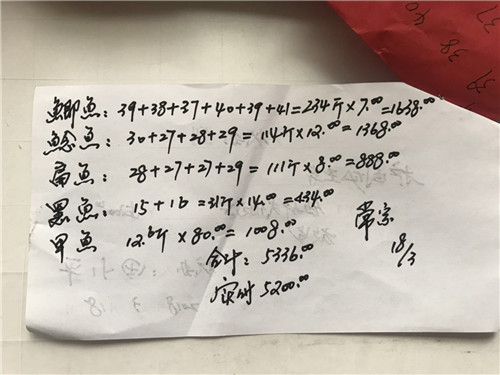 鯽魚：39+38+37+40+39+41=234斤×7.00=1638.00
鯰魚：30+27+28+29=114斤×12.00=1368.00
扁魚：28+27+27+29=111斤×8.00=888.00
黑魚：15+16=31斤×14.00=434.00
甲魚 12.6斤×80.00=1008.00
合计：5336.00
实付5200.00
常宗
18/3
38